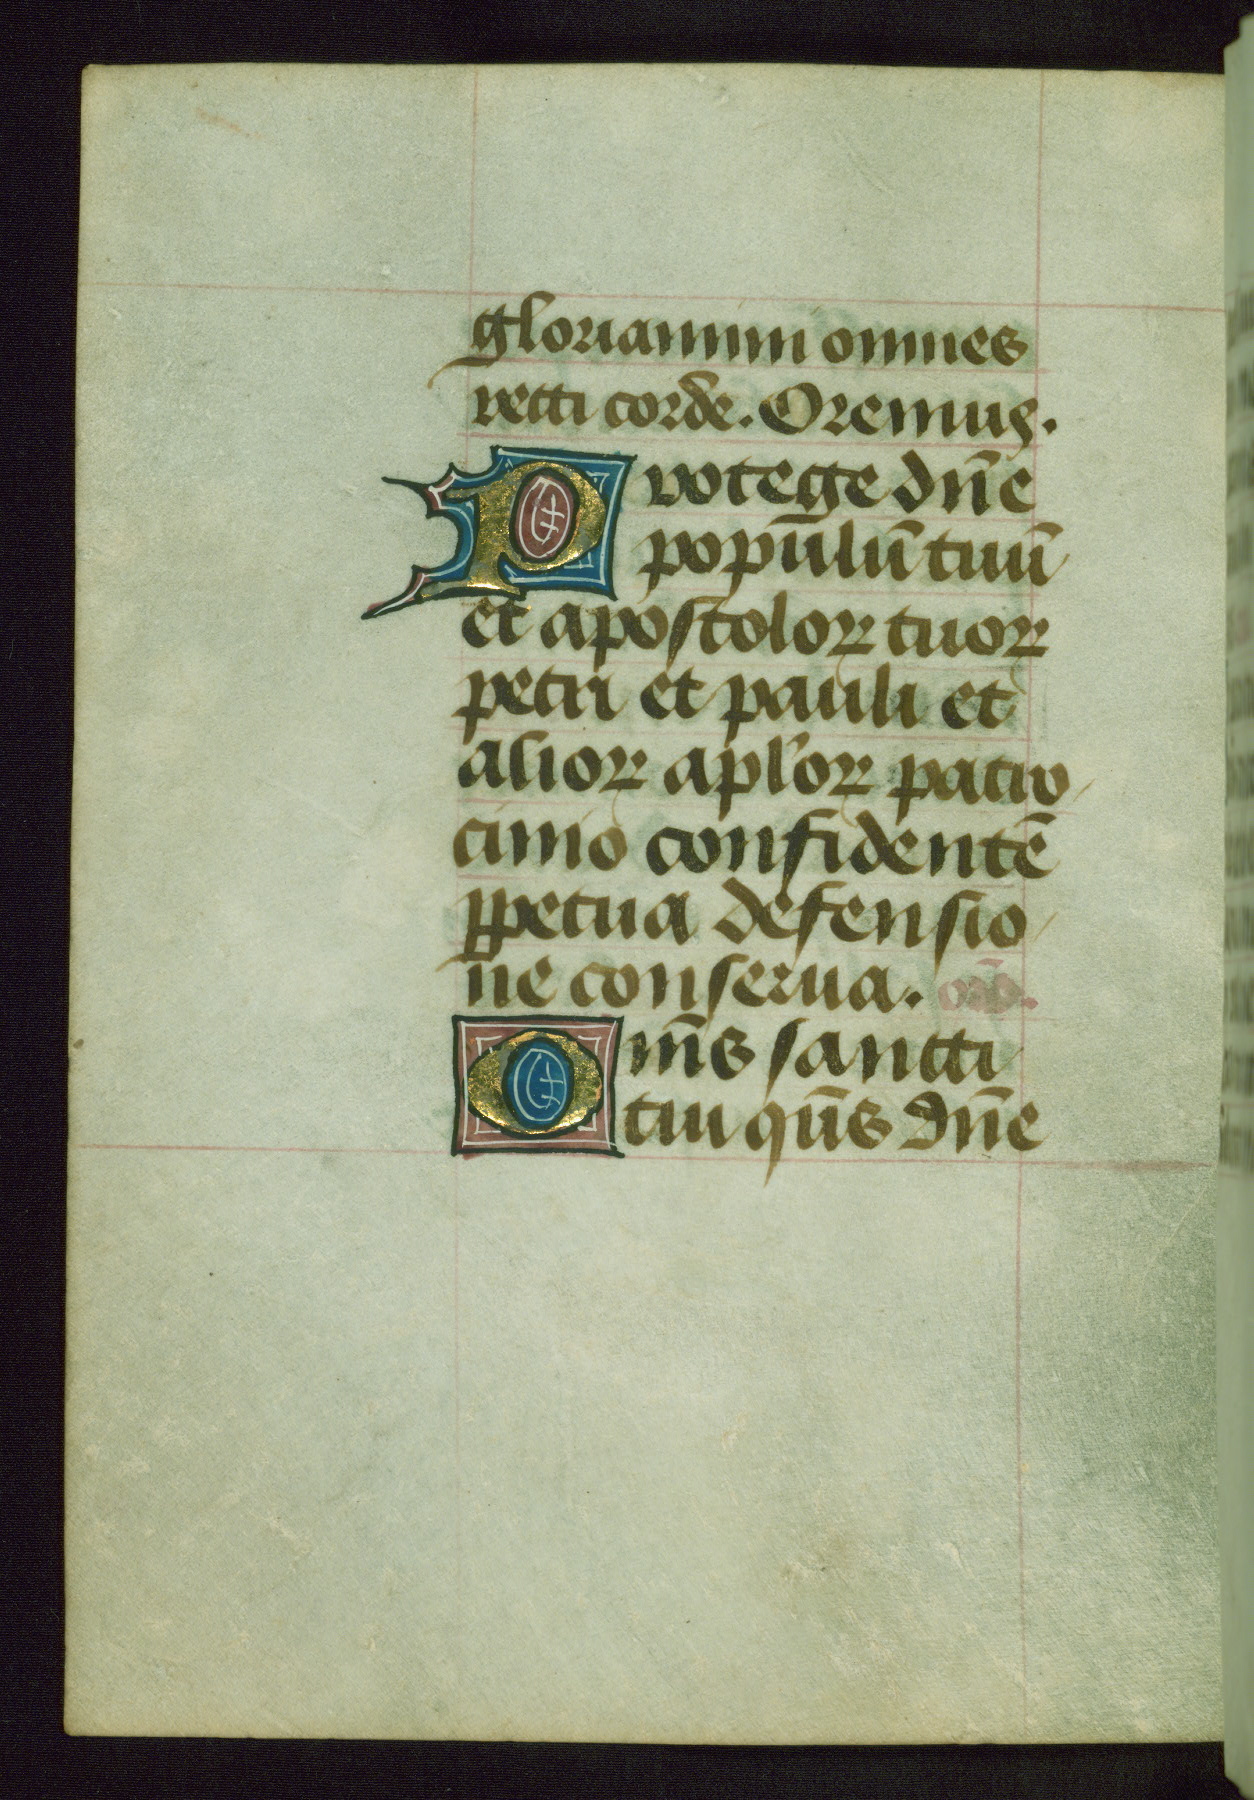 gloriamini omnes
recti corde. Oremus.
Protege dn̄e
popūlū tuū
et apostoloꝝ tuoꝝ
petri et pauli et
alioꝝ apl'oꝝ patro
cinio confidentē
ꝑpetua defensio
ne conserua. orō.
Omn̄s sancti
tui qūs dn̄e